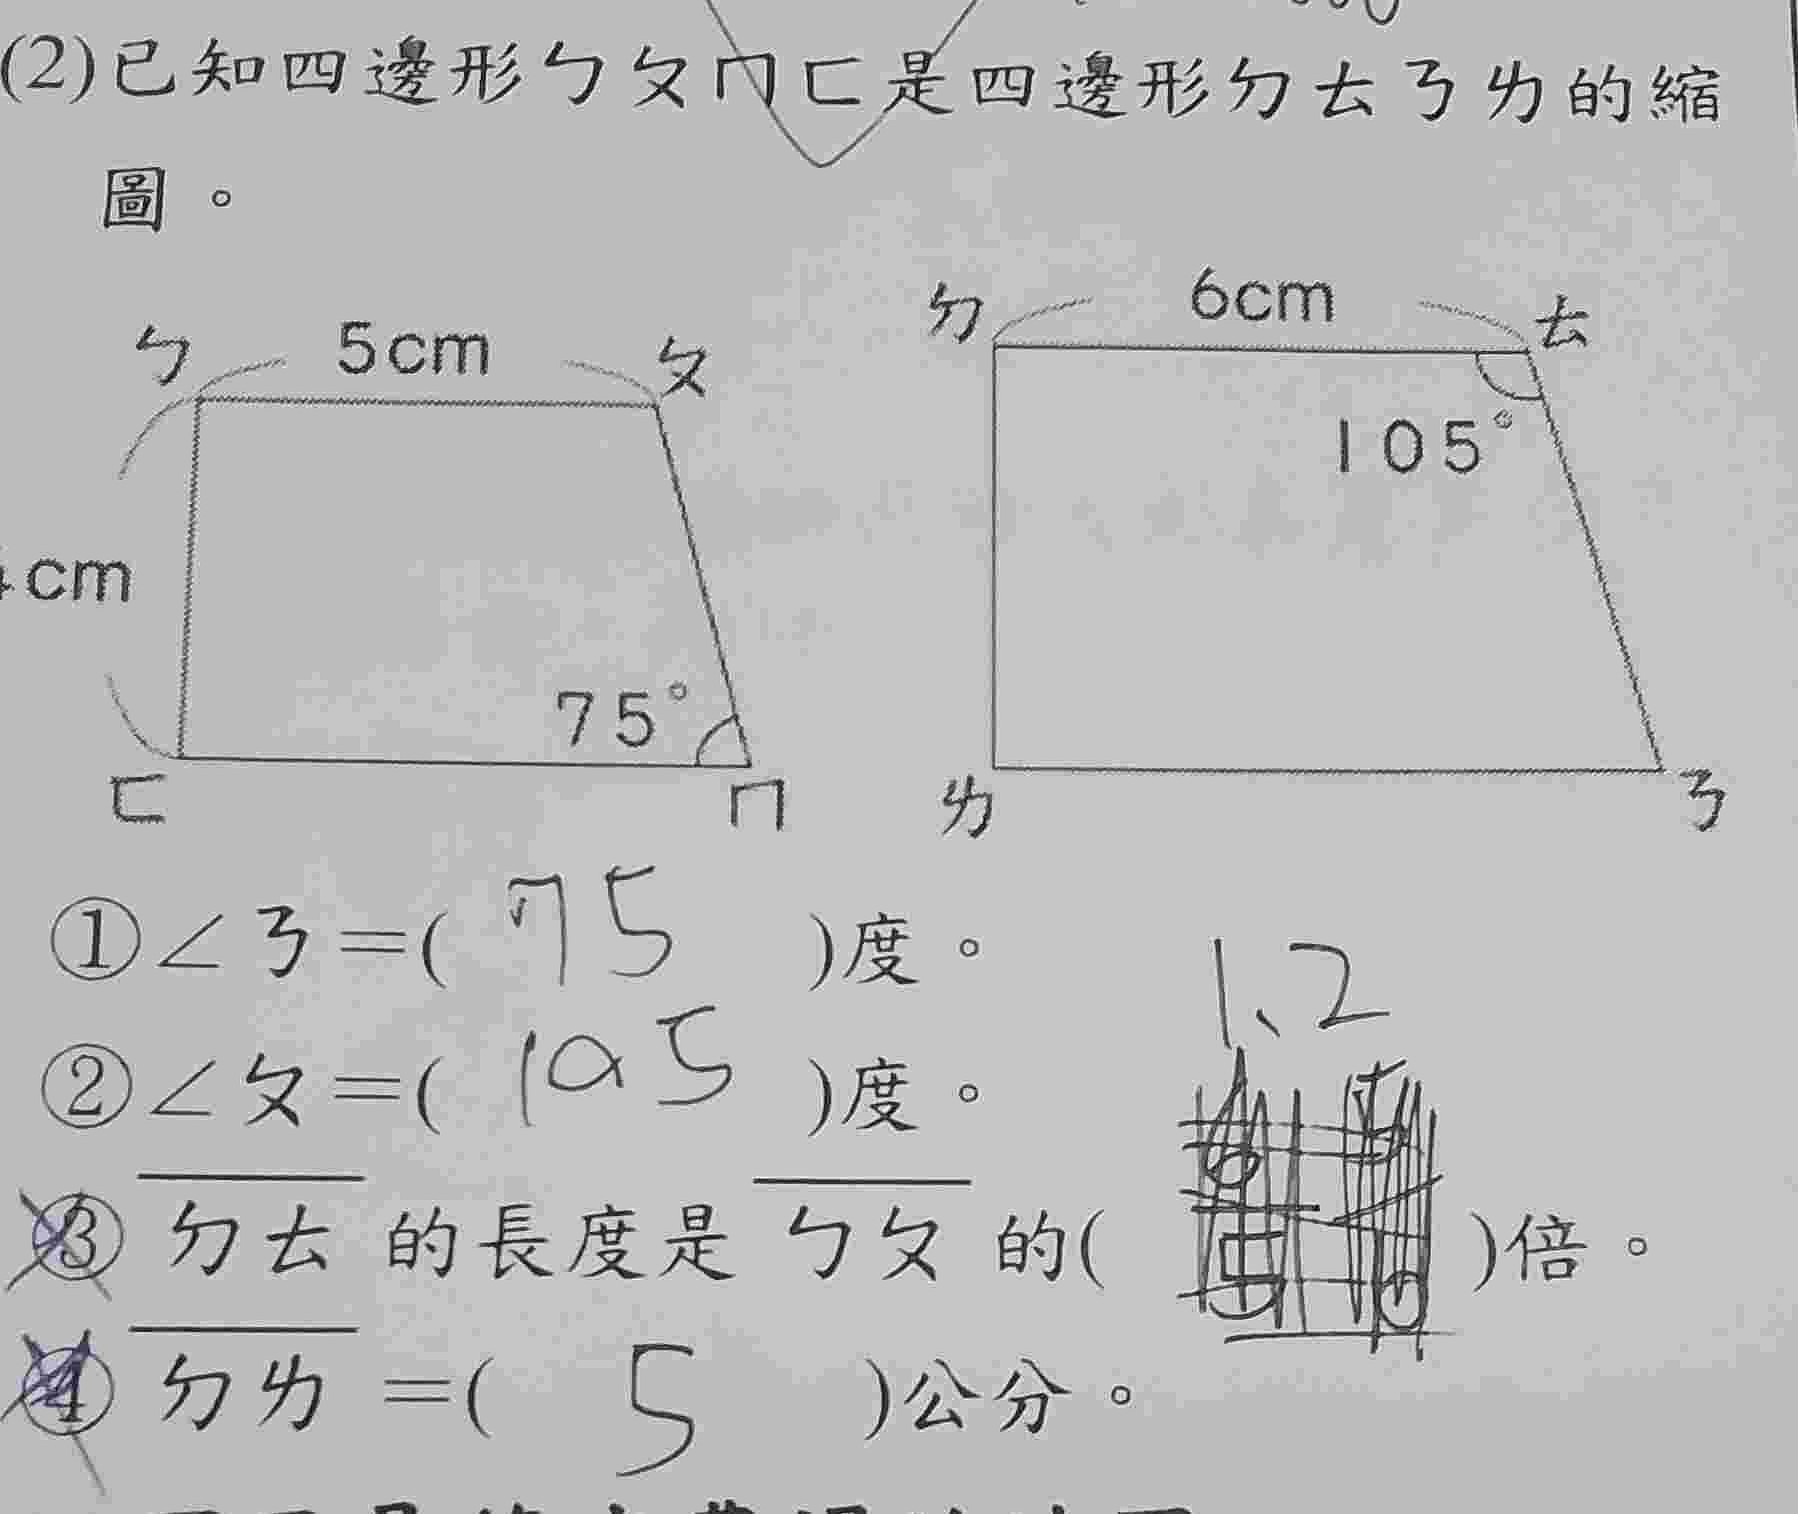 (2)已知四邊形ㄅㄆㄇㄈ是四邊形ㄉㄊㄋㄌ的縮
圖。
ㄅ 5cm ㄆ
ㄉ 6cm ㄊ
105°
cm
75°
ㄈ ㄇ
ㄌ ㄋ
①∠ㄋ=( 75 )度。
1.2
②∠ㄆ=( 105 )度。
③ ㄉㄊ 的長度是 ㄅㄆ 的( )倍。
④ ㄉㄌ =( 5 )公分。